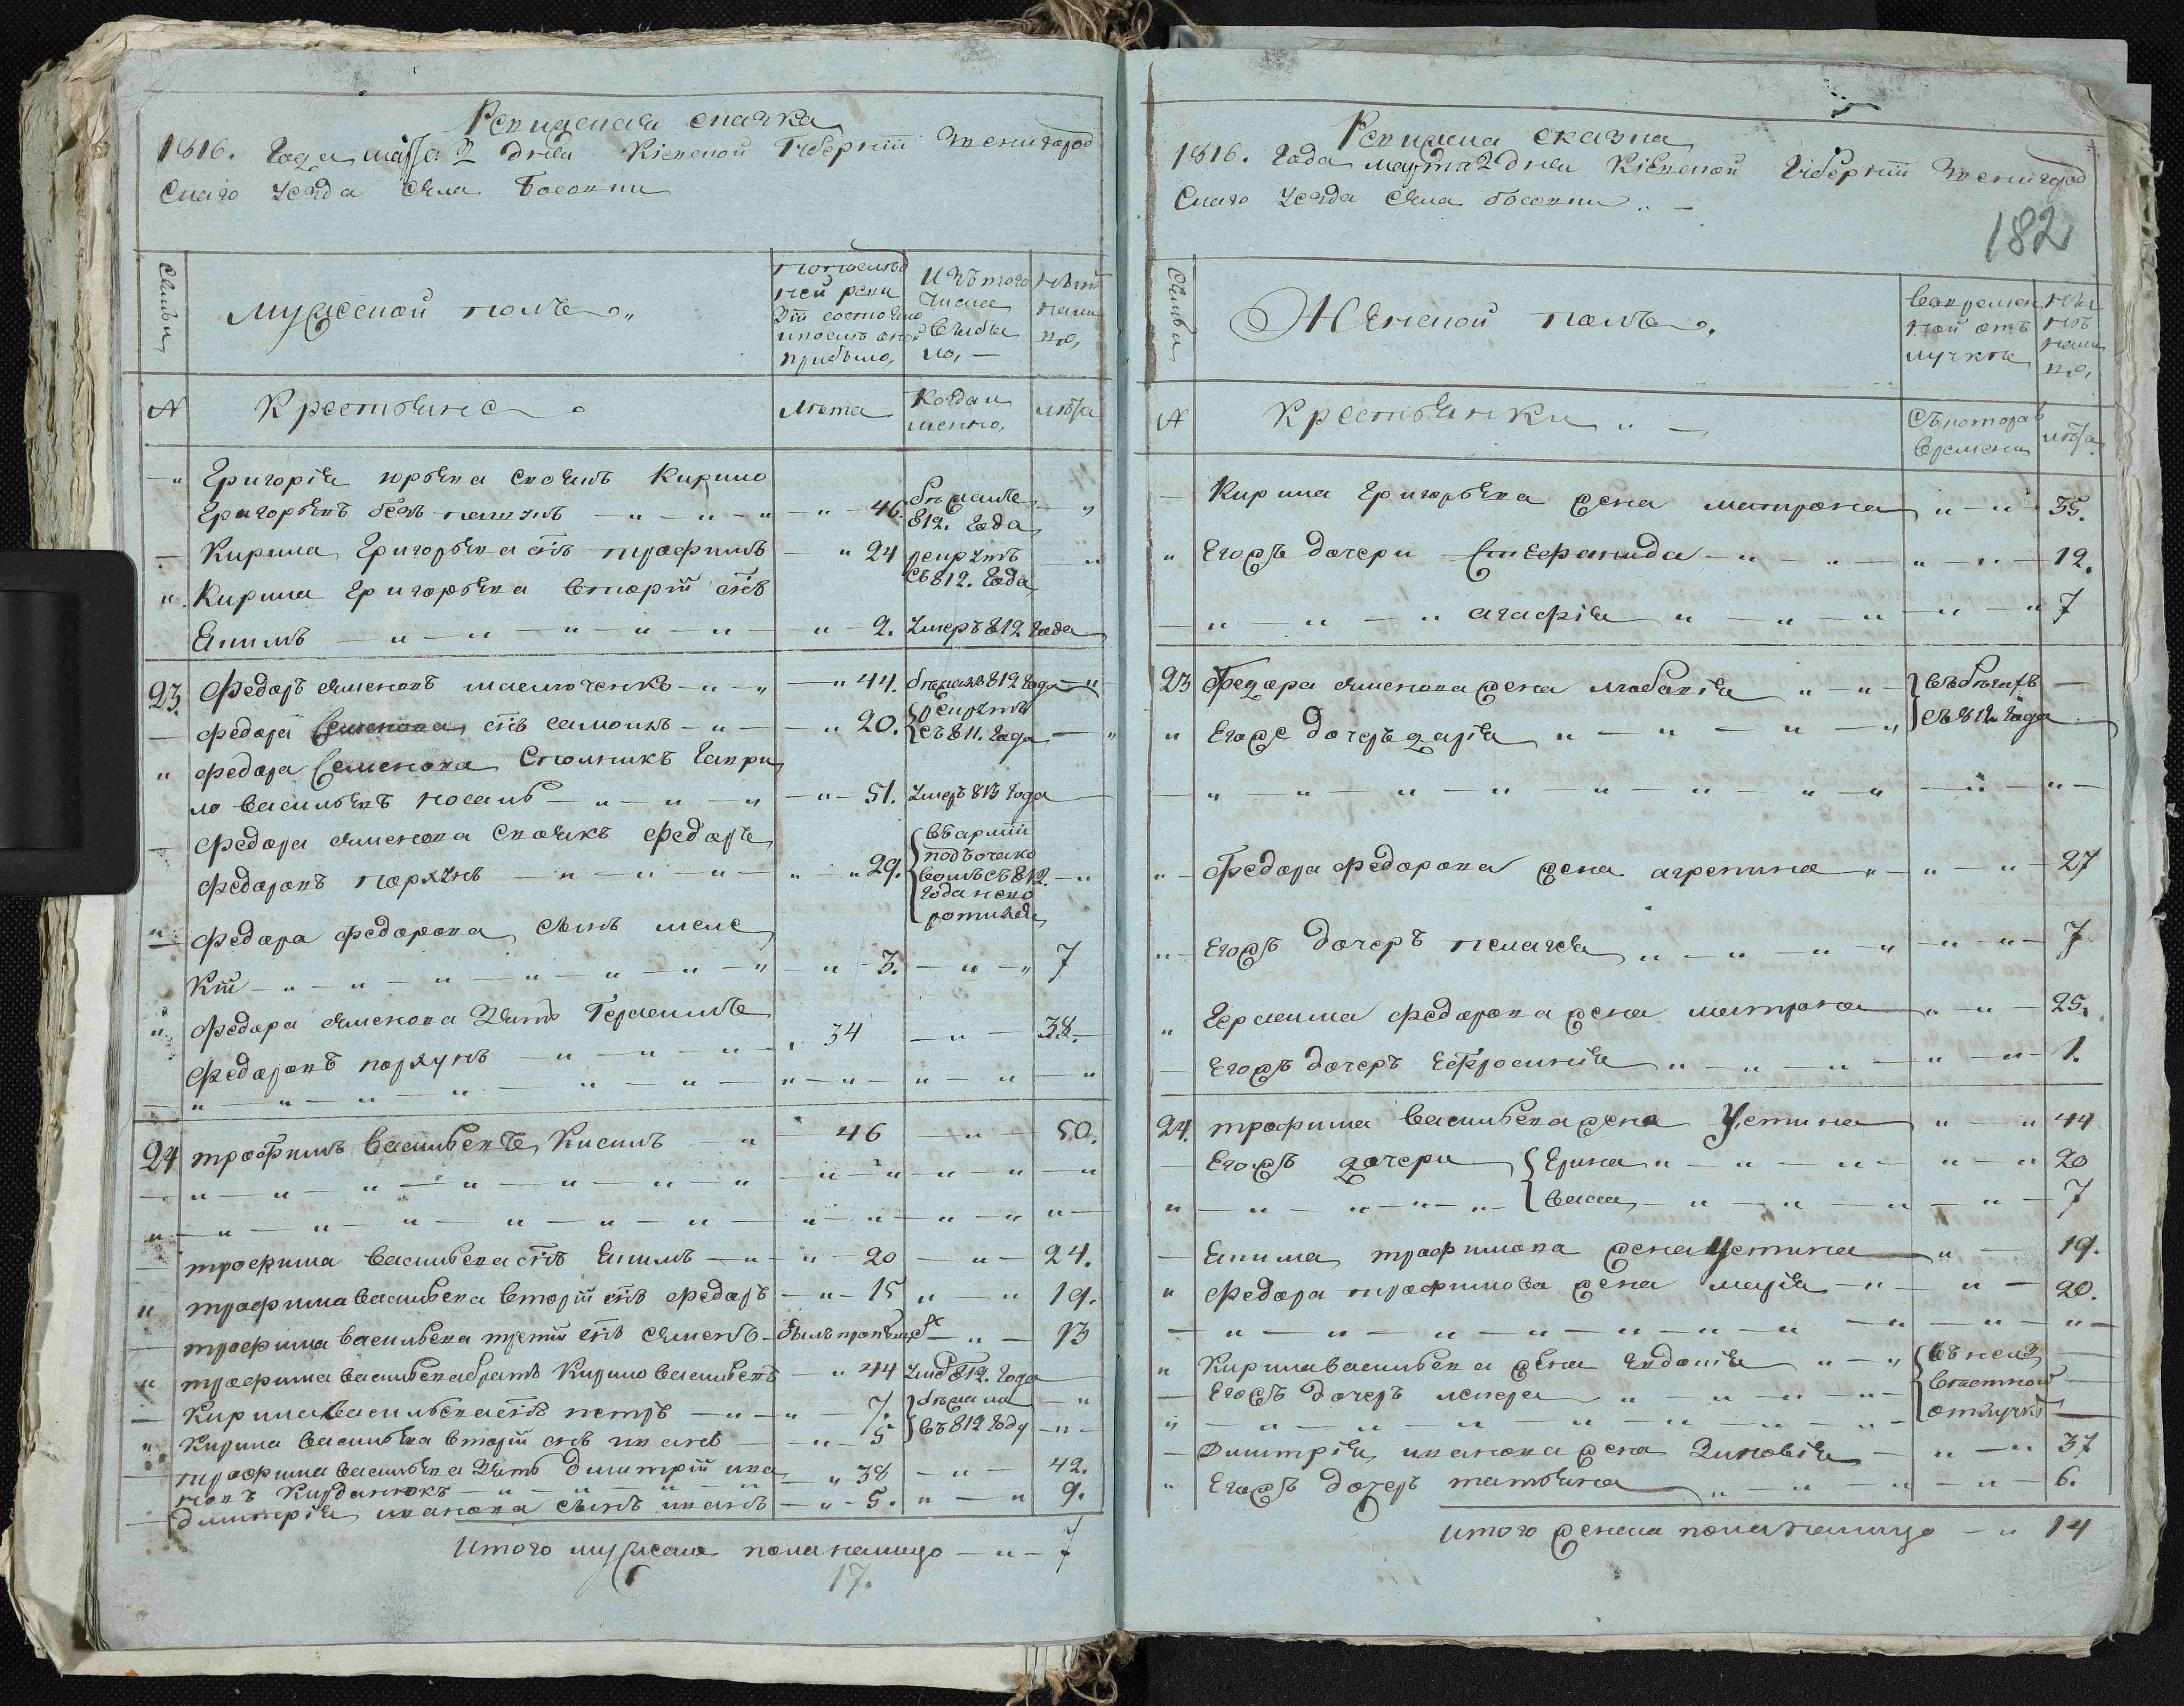 Ревизская сказка
1816. Года марта 2 дня Кіевской Губерніи Звенигород
скаго уезда села Босовки
Семьи
мужеской полъ
по послед
ней реви
зіи состояло
и после оной
прибыло,
Изъ того
числа
выбы
ло, —
ныне
на ли
цо,
№
Крестьяне
Лета
Когда и
менно,
лета
Григорія юрьева своякъ Кирило
Григорьевъ — " — " — " — 46. бежалъ 812. Года
Кирила Григорьева сынъ трофимъ — " 24 рекрутъ съ 812. Года
Кирила Григорьева вторій сынъ
Якимъ — " — " — " — " — " — 2. умеръ 812 Года
23. Федоръ семеновъ — " — " — " 44. бежалъ 812 Года
федора Семенова сынъ самойлъ — " — " 20. рекрутъ съ 811. Года
федора Семенова Гаври
ло васильевъ носаль — " — " — " — " — 51. умеръ 813 Года
федора семенова своякъ федоръ
федоровъ порхунъ — " — " — " — " 29. въ арміи подъ съ 812. Года
федора федорова сынъ алек
сій — " — " — " — " — " — 3. — " — " 7
федора семенова Зять Герасимъ
федоровъ порхунъ — " — " — " 34 — " — 38.
24 трофимъ васильевъ Кисиль — " 46 — " — 50.
трофима васильева сынъ Якимъ — " — " 20 — " — 24.
трофима васильева вторій сынъ федоръ — " — 15 " — " 19.
трофима васильева третій сынъ семенъ — былъ — " — 13
трофима васильева братъ Кирило васильевъ — " 44 умеръ 812. Года
Кирила васильева сынъ петръ — " — " — 7. бежали
Кирила васильева вторій сынъ иванъ — " — 5 въ 812 Году — " —
трофима васильева Зять димитрій ива
новъ — " — " — " — " 38 — " — 42.
димитрія иванова сынъ иванъ — " — 5. " — " 9.
Итого мужеска пола налицо — " — 7
17.
Ревизска сказка
1816. Года марта 2 дня Кіевской Губерніи Звенигород
скаго уезда села босовки " —
182
Семьи
Женской полъ
во времен
ной отъ
лучке
ны
не
нали
цо,
№
Крестьянки " —
съ котораго
времени
лета
Кирила Григорьева жена матрона " — " 35.
" Его жъ дочери Стефанида — " — " — " — " — 12.
— " — " — " агафія " — " — " — " — " 7
23 Федора семенова жена — " — " въ бегахъ
" Его же дочеръ дарія " — " — " — " съ 812 Года
Федора федорова жена агрепина " — " — " — 27
Его жъ дочеръ пелагея " — " — " — " — " — " — 7
" Герасима федорова жена матрона — " — " — 25.
Его жъ дочеръ Ефросинія " — " — " — " — " — 1.
24. трофима васильева жена Устина " — " 44
Его жъ дочери Ирина " — " — " — " — " 20
васса — " — " — " — " — 7
Якима трофимова жена Устина — " — 19.
" Федора трофимова жена марія — " — " — 20.
" Кирила васильева жена Евдокія " — "
Его жъ дочеръ " — " — " — " — отлучке
Димитрія иванова жена Зиновія — " — " 37
" Его жъ дочеръ татьяна " — " — " — " — 6.
итого женска пола налицо — " 14